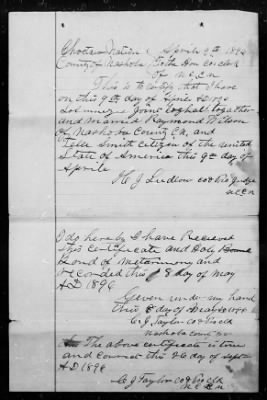 Choctaw Nation April 9th 1896
County of Nashoba To the Hon co clerk
of N.C.C.N
This is to certify that I have
on this 9th day of April AD 1896
joint together
and married Raymond Wilson
of Nashoba County C.N. and
Smith citizen of the united
State of America this 9th day of
Aprile
H J Ludlow co & Pro Judge
N.C.C.N
I do here by I have Recieved
this certificate and Holy
Bond of Metarimony and
recorded this 8 day of May
AD 1896
Given under my hand
this 8 day of May 1896
C. J. Taylor co & Pro clk
Nashoba county
The above certificate is true
and correct this 26 day of Sept
AD 1896
C J Taylor co & Pro clk
N.C.C.N